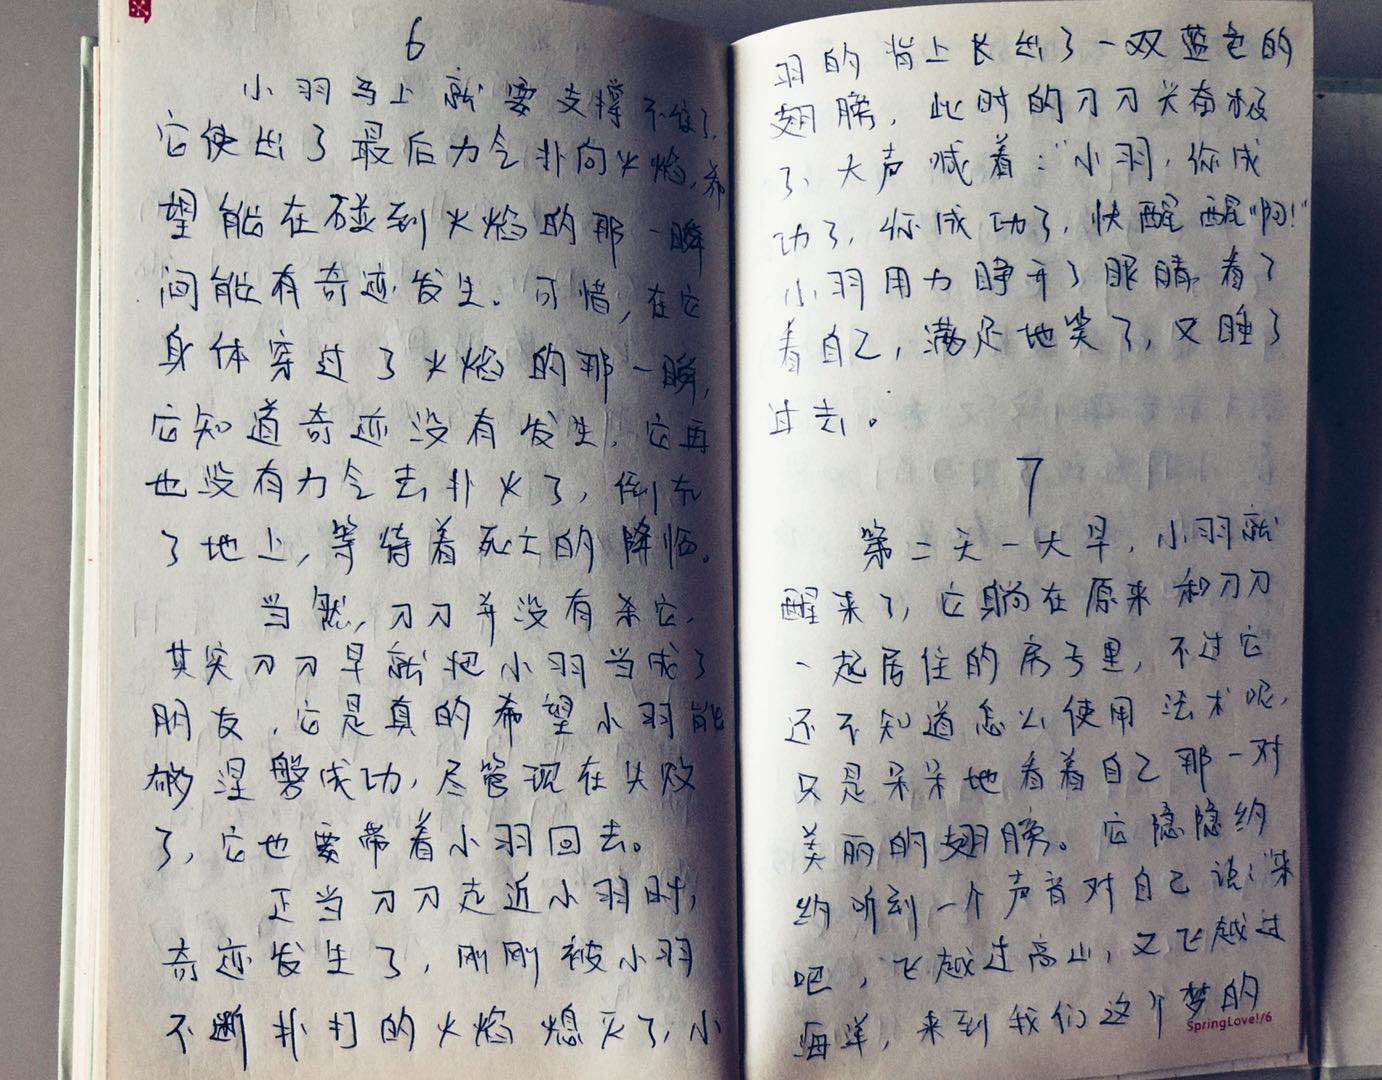 6
小羽马上就要支撑不住了,
它使出了最后力气扑向火焰,希
望能在碰到火焰的那一瞬
间能有奇迹发生。可惜,在它
身体穿过了火焰的那一瞬,
它知道奇迹没有发生,它再
也没有力气去扑火了,倒在
了地上,等待着死亡的降临。
当然,刀刀并没有杀它,
其实刀刀早就把小羽当成了
朋友,它是真的希望小羽能
够涅磐成功,尽管现在失败
了,它也要带着小羽回去。
正当刀刀走近小羽时,
奇迹发生了,刚刚被小羽
不断扑打的火焰熄灭了,小
羽的背上长出了一双蓝色的
翅膀,此时的刀刀兴奋极
了,大声喊着:“小羽,你成
功了,你成功了,快醒醒啊!”
小羽用力睁开了眼睛,看了
看自己,满足地笑了,又睡了
过去。
7
第二天一大早,小羽就
醒来了,它躺在原来和刀刀
一起居住的房子里,不过它
还不知道怎么使用法术呢,
只是呆呆地看着自己那一对
美丽的翅膀。它隐隐约
约听到一个声音对自己说:来
吧,飞越过高山,又飞越过
海洋,来到我们这个梦的
SpringLove!/6